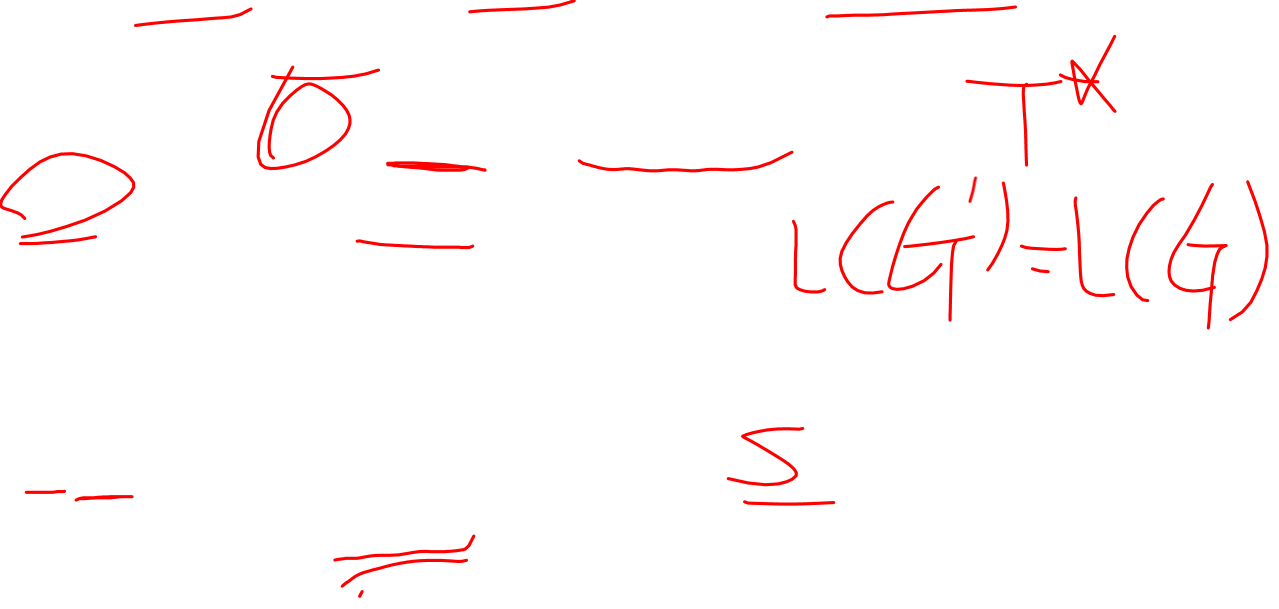 T*
L(G')=L(G)
S